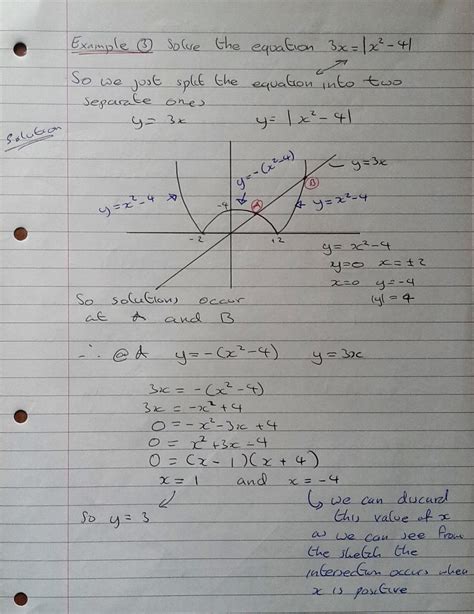 Example ③ Solve the equation 3x = |x² - 4|
So we just split the equation into two
separate ones
y = 3x y = |x² - 4|
Solution
y = -(x² - 4)
y = 3x
y = x² - 4
-4
A
B
y = x² - 4
-2
+2
y = x² - 4
y = 0 x = ±2
x = 0 y = -4
|y| = 4
So solutions occur
at A and B
∴ @ A y = -(x² - 4) y = 3x
3x = -(x² - 4)
3x = -x² + 4
0 = -x² - 3x + 4
0 = x² + 3x - 4
0 = (x - 1)(x + 4)
x = 1 and x = -4
So y = 3
we can discard
this value of x
as we can see from
the sketch the
intersection occurs when
x is positive